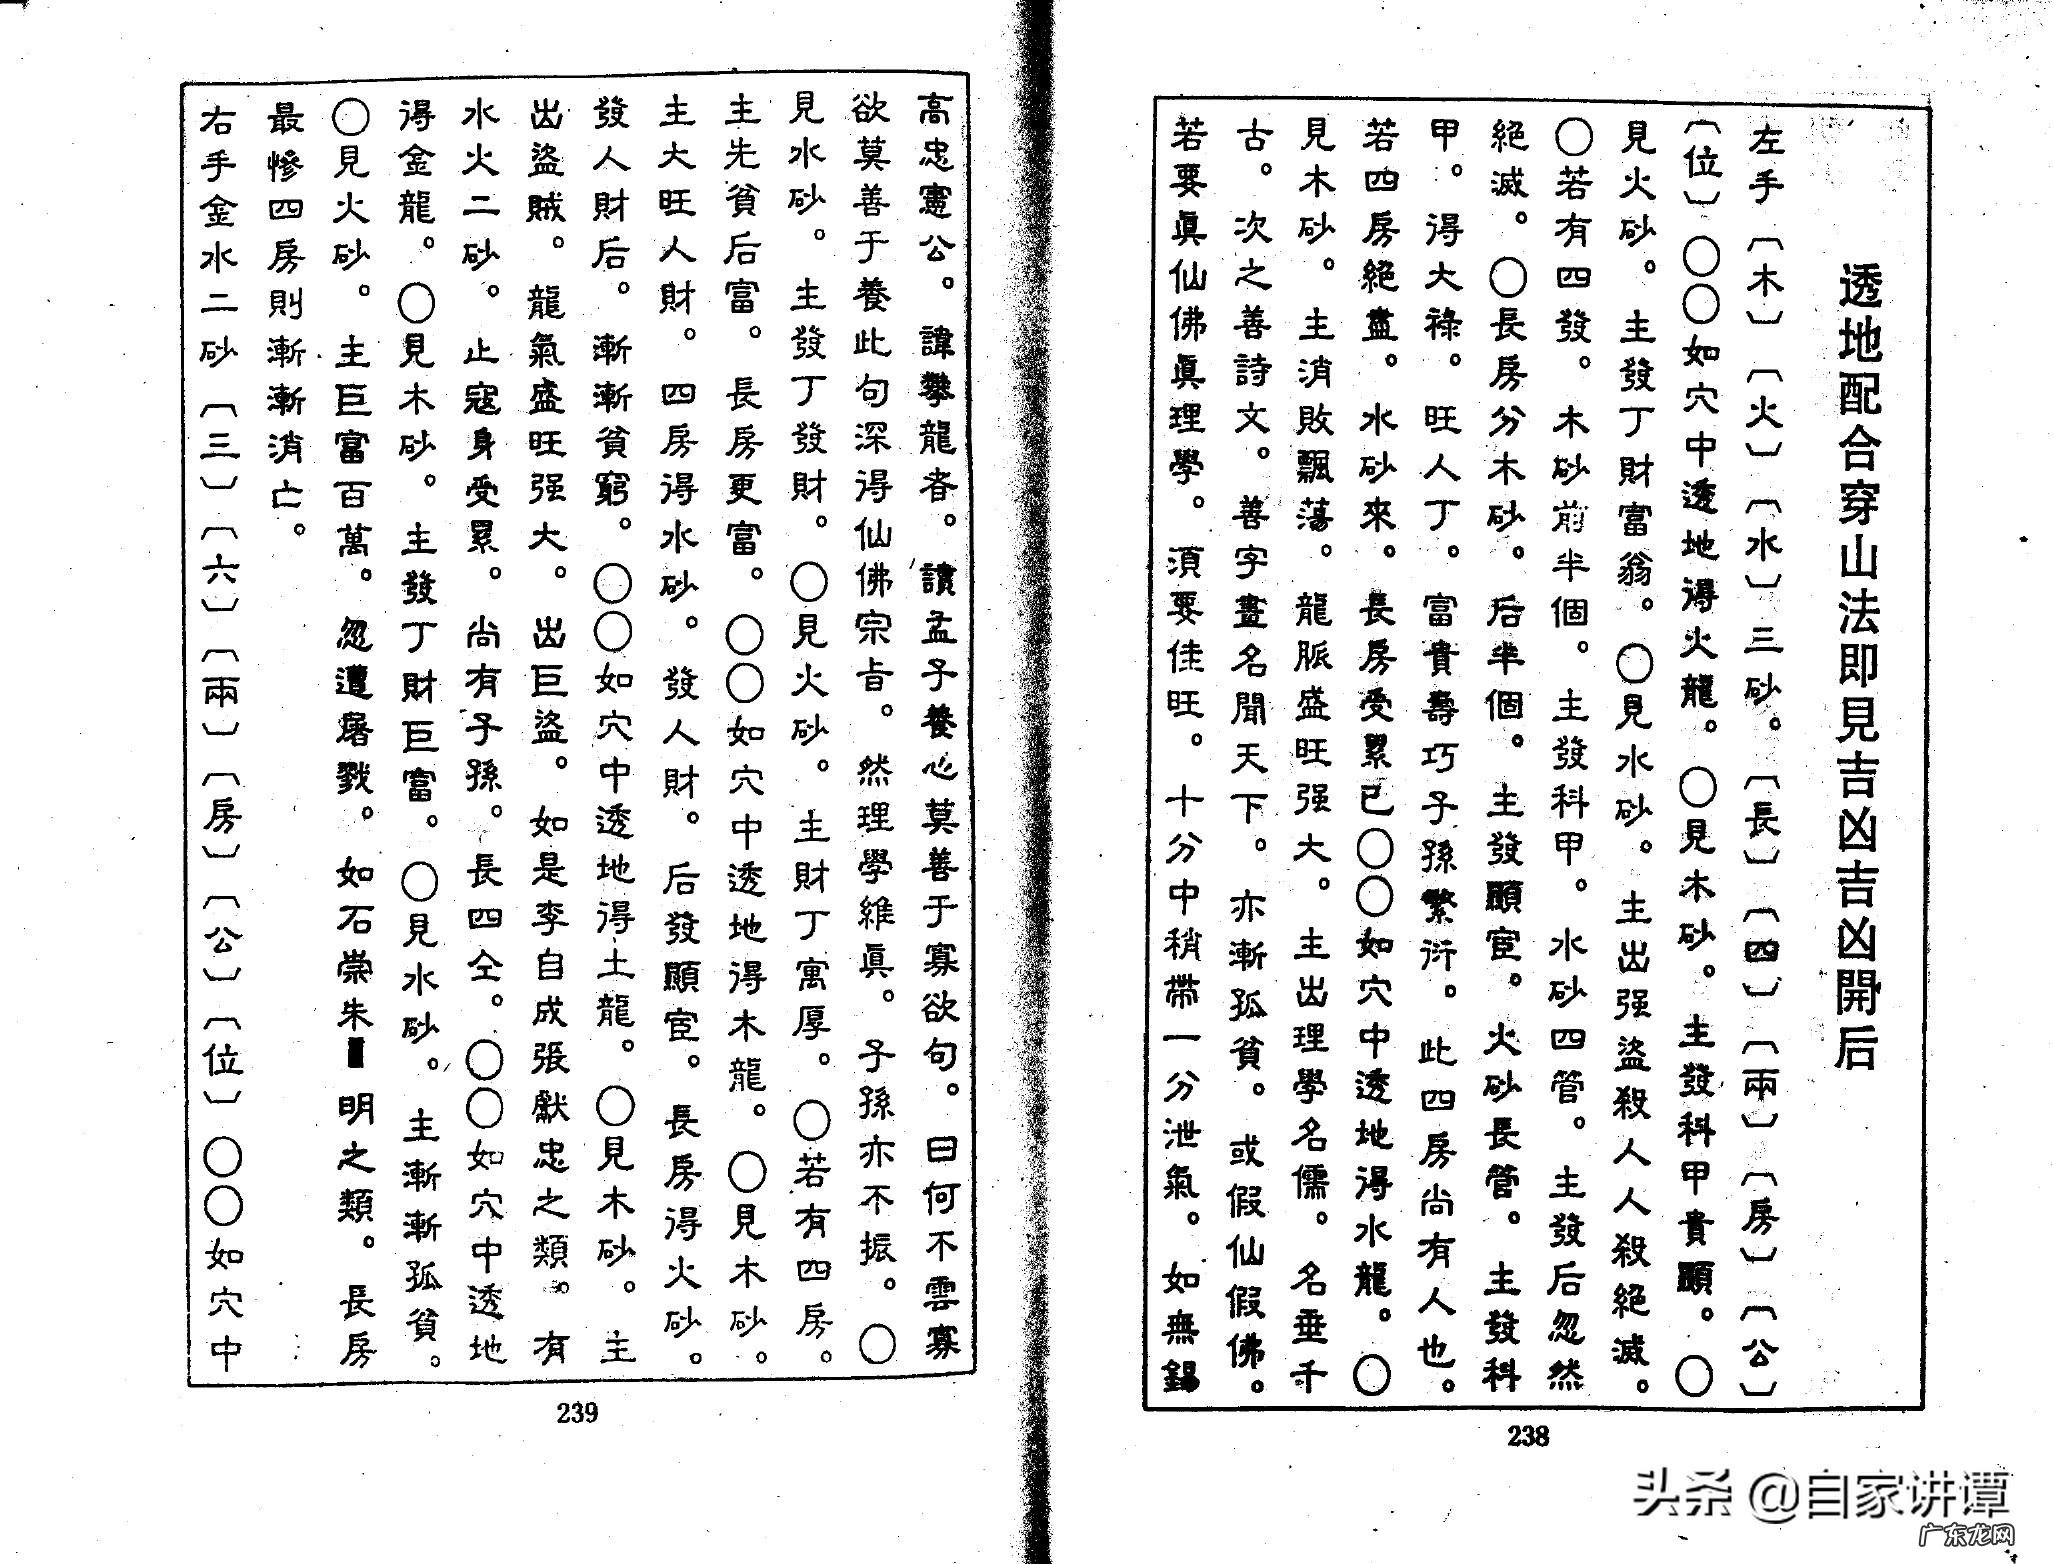 透地配合穿山法即見吉凶吉凶開后
左手〔木〕〔火〕〔水〕三砂。〔長〕〔四〕〔兩〕〔房〕〔公〕
〔位〕〇〇如穴中透地得火龍。〇見木砂。主發科甲貴顯。〇
見火砂。主發丁財富翁。〇見水砂。主出强盜殺人人殺絕滅。
〇若有四發。木砂前半個。主發科甲。水砂四管。主發后忽然
絕滅。〇長房分木砂。后半個。主發顯宦。火砂長管。主發科
甲。得大祿。旺人丁。富貴壽巧子孫繁衍。此四房尚有人也。
若四房絕盡。水砂來。長房受累已〇〇如穴中透地得水龍。〇
見木砂。主消敗飄蕩。龍脈盛旺强大。主出理學名儒。名垂千
古。次之善詩文。善字畫名聞天下。亦漸孤貧。或假仙假佛。
若要眞仙佛眞理學。須要佳旺。十分中稍帶一分泄氣。如無錫
238
高忠憲公。諱攀龍者。讀孟子養心莫善于寡欲句。曰何不雲寡
欲莫善于養此句深得仙佛宗旨。然理學維眞。子孫亦不振。〇
見水砂。主發丁發財。〇見火砂。主財丁寓厚。〇若有四房。
主先貧后富。長房更富。〇〇如穴中透地得木龍。〇見木砂。
主大旺人財。四房得水砂。發人財。后發顯宦。長房得火砂。
發人財后。漸漸貧窮。〇〇如穴中透地得土龍。〇見木砂。主
出盜賊。龍氣盛旺强大。出巨盜。如是李自成張獻忠之類。有
水火二砂。止寇身受累。尚有子孫。長四仝。〇〇如穴中透地
得金龍。〇見木砂。主發丁財巨富。〇見水砂。主漸漸孤貧。
〇見火砂。主巨富百萬。忽遭屠戮。如石崇朱明之類。長房
最慘四房則漸漸消亡。
右手金水二砂〔三〕〔六〕〔兩〕〔房〕〔公〕〔位〕〇〇如穴中
239
头条 @自家讲谭
广东龙网